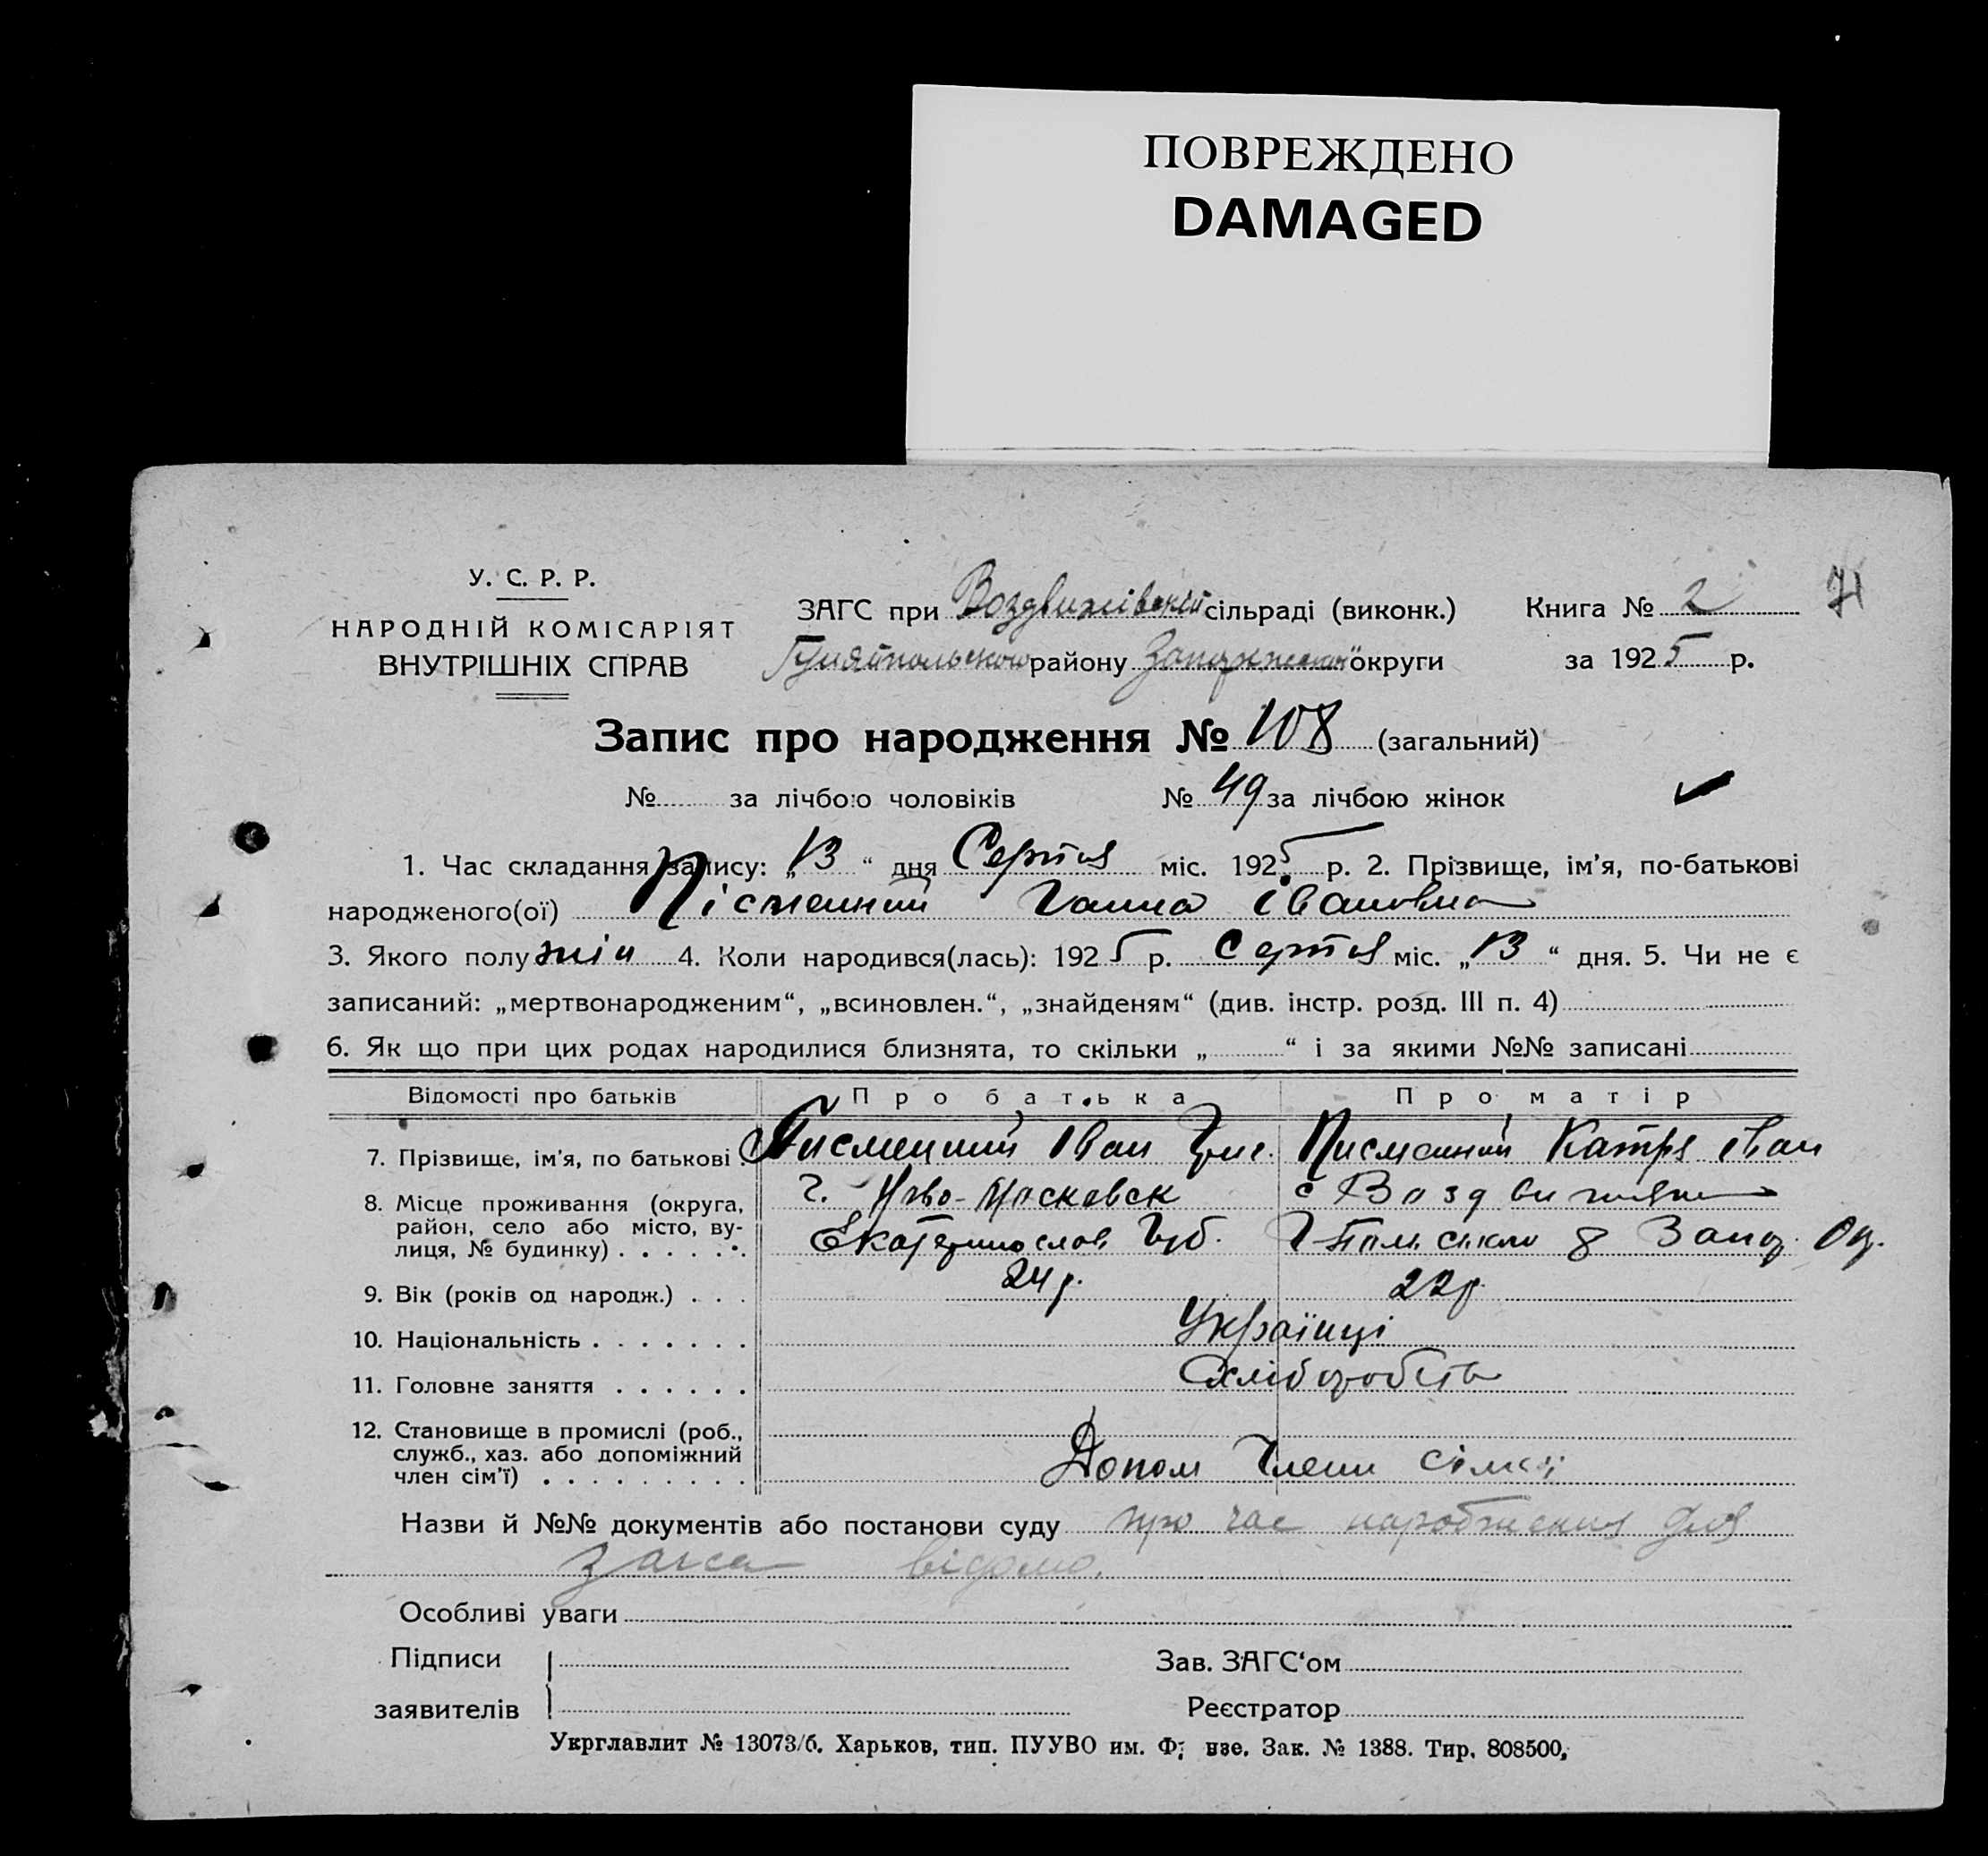 ПОВРЕЖДЕНО
DAMAGED
У. С. Р. Р.
НАРОДНІЙ КОМІСАРІЯТ
ВНУТРІШНІХ СПРАВ
ЗАГС при Воздвижівській сільраді (виконк.)
Гуляйпольського району Запоріжської округи
Книга № 2
71
за 1925 р.
Запис про народження № 108 (загальний)
№ за лічбою чоловіків № 49 за лічбою жінок
1. Час складання запису: „13“ дня Серпня міс. 1925 р. 2. Прізвище, ім'я, по-батькові
народженого(ої) Пісменний Ганна Івановна
3. Якого полу жін 4. Коли народився(лась): 1925 р. Серпня міс. „13“ дня. 5. Чи не є
записаний: „мертвонародженим“, „всиновлен.“, „знайденям“ (див. інстр. розд. III п. 4)
6. Як що при цих родах народилися близнята, то скільки „ “ і за якими №№ записані
Відомості про батьків Про батька Про матір
7. Прізвище, ім'я, по батькові. Письменний Іван Григ. Писменний Катря Іван
8. Місце проживання (округа, г. Ново-Московск с Воздвижен
район, село або місто, ву-
лиця, № будинку) . . . . . . Екатеринослав Губ. Г Польского р Запор. Ок.
9. Вік (років од народж.) . . . 24 р. 22 р.
10. Національність . . . . . . . Українці
11. Головне заняття . . . . . . Схлібороб
12. Становище в промислі (роб.,
служб., хаз. або допоміжний
член сім'ї) . . . . . . . . . Допом члени сімьї
Назви й №№ документів або постанови суду про час народження для
загса відомо.
Особливі уваги
Підписи
заявителів
Зав. ЗАГС'ом
Реєстратор
Укрглавлит № 13073/б. Харьков, тип. ПУУВО им. Ф нзе. Зак. № 1388. Тир. 808500.